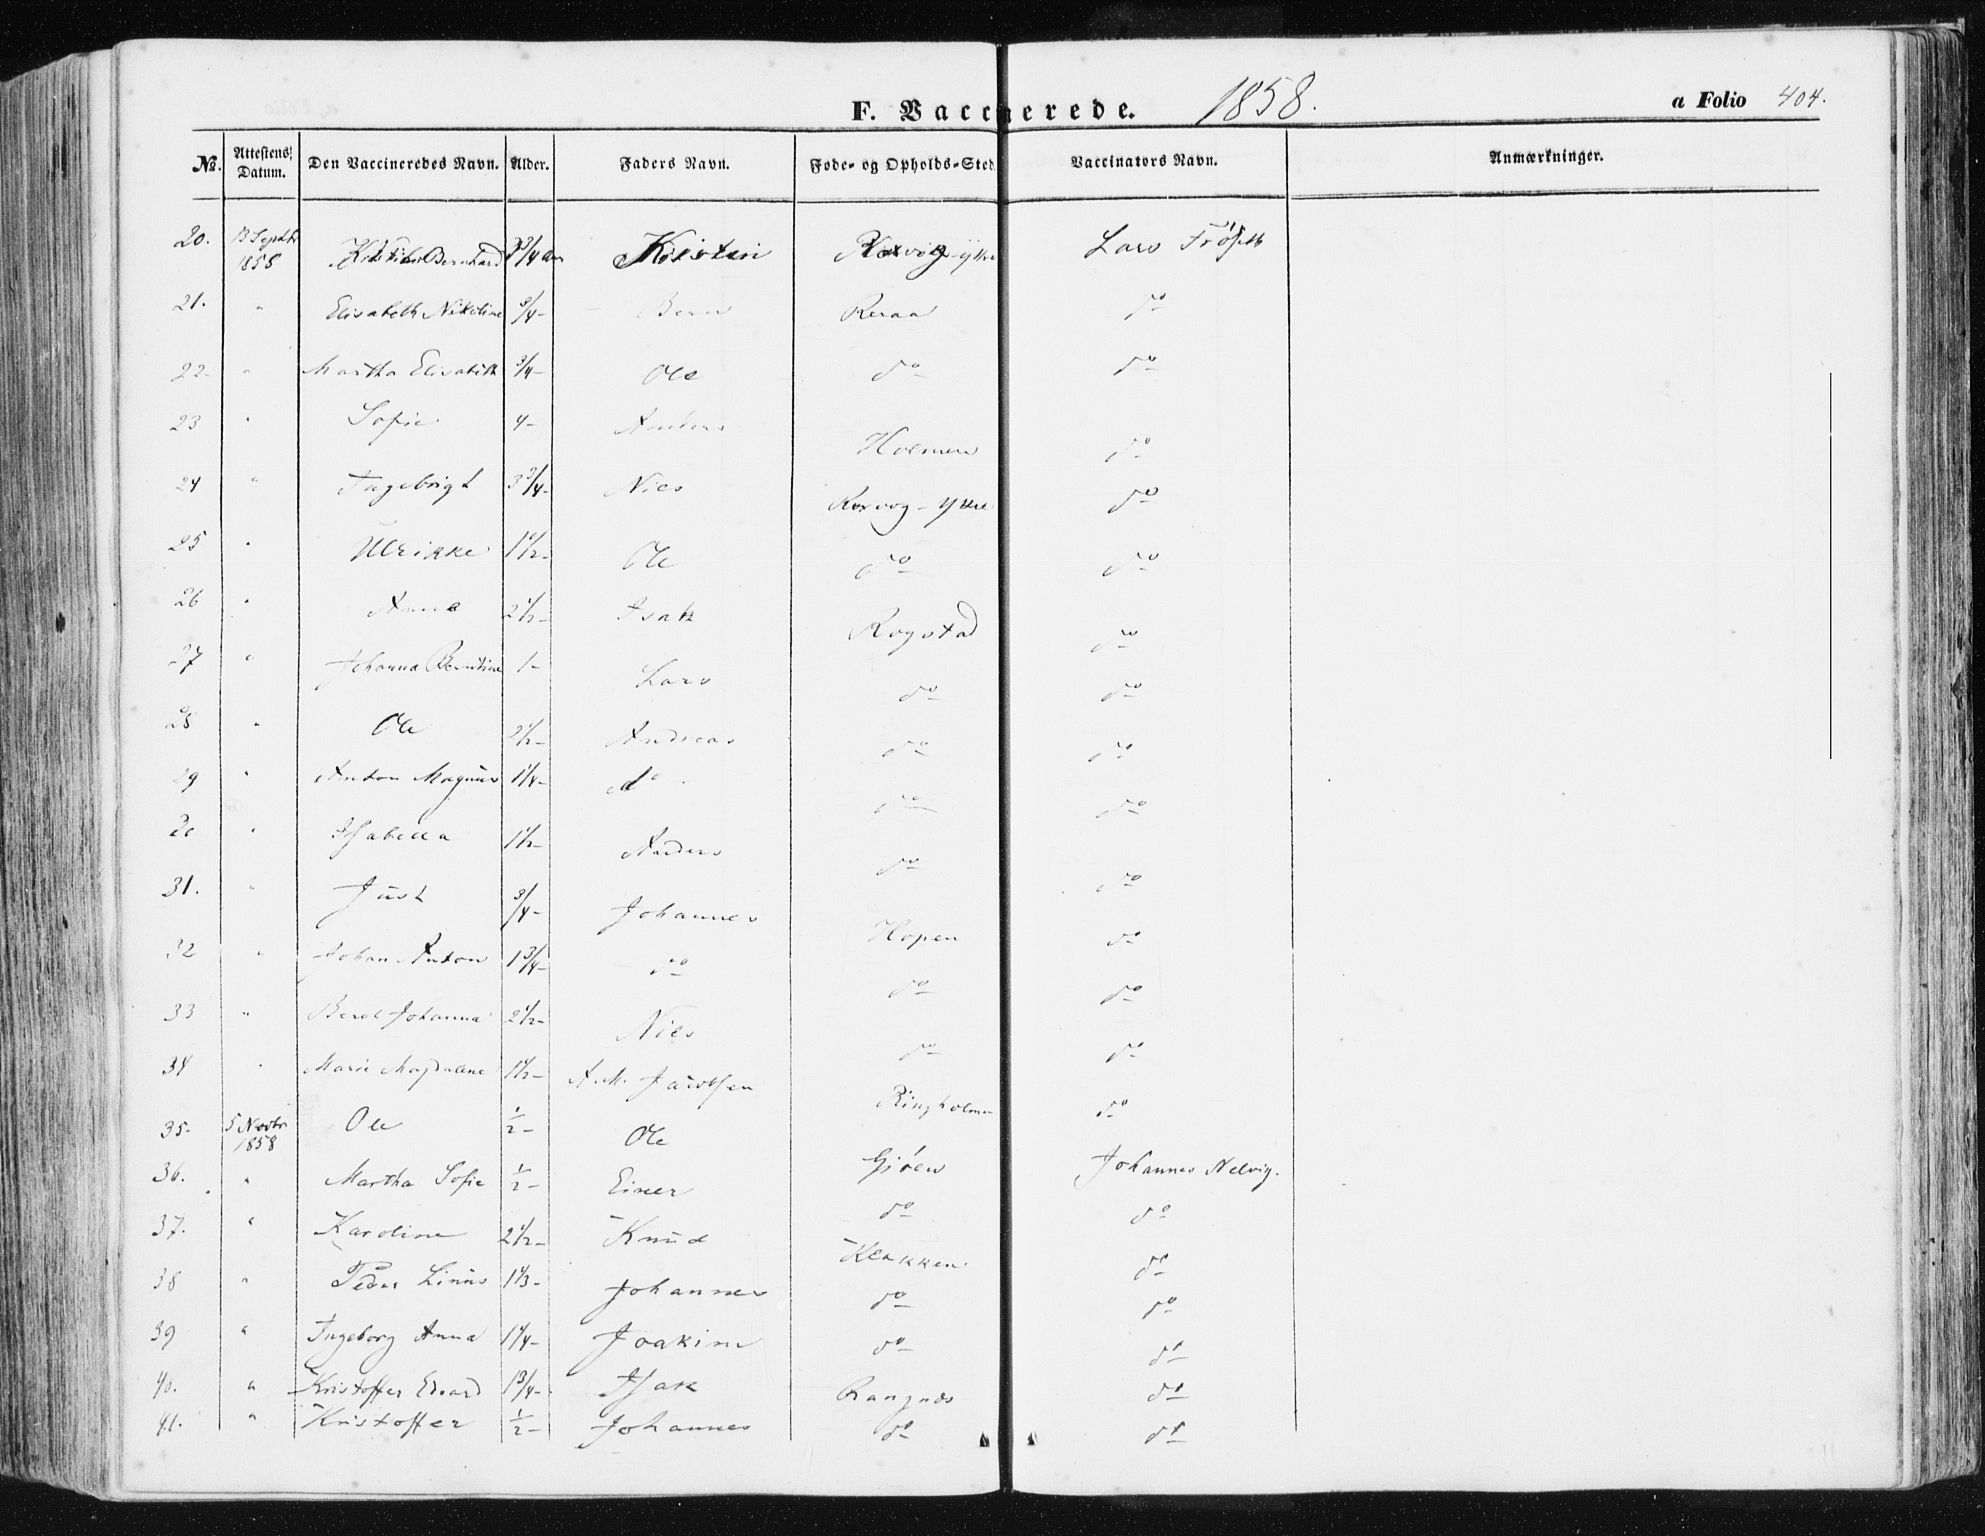 F. Vaccinerede. 1858. a Folio 404.
No. Attestens Datum. Den Vaccineredes Navn. Alder. Faders Navn. Føde- og Opholds-Sted. Vaccinators Navn. Anmærkninger.
20. 13 Septbr 1858 Bernhard 3/4 aar Kristen Korsvog ytre Lars Frøseth
21. " Elisabeth Nikoline 3/4 - Beraa do
22. " Martha Elisabeth 3/4 - Ole do do
23 " Sofie 4 - Anders Holmen do
24 " Ingebrigt 3 3/4 - Nils Korsvog - Ytre do
25 " Ulrikke 1 1/2 - Ole do do
26 " Anne 2 1/2 - Isak Rogstad do
27 " Johanna Berntine 1 - Lars do do
28 " Ole 2 1/2 - Andreas do do
29 " Anton Magnus 1 1/4 - do do do
30 " Isabella 1 1/2 - Anders do do
31. " Just 3/4 - Johannes Hopen do
32 " Johan Anton 1 3/4 - do do do
33 " Beret Johanna 2 1/2 - Nils do do
34 " Marie Magdalene 1 1/2 - A. M. Jacobsen Ringholmen do
35. 5 Novbr 1858 Ole 1/2 - Ole Gjøen Johannes Nelvig.
36. " Martha Sofie 1/2 - Einer do do
37. " Karoline 2 1/2 - Knud Klakken do
38 " Peder Linus 1 1/3 - Johannes do do
39 " Ingeborg Anna 1 1/4 - Joakim do do
40. " Kristoffer Edvard 1 3/4 - Isak Rangnæs do
41. " Kristoffer 1/2 - Johannes do do